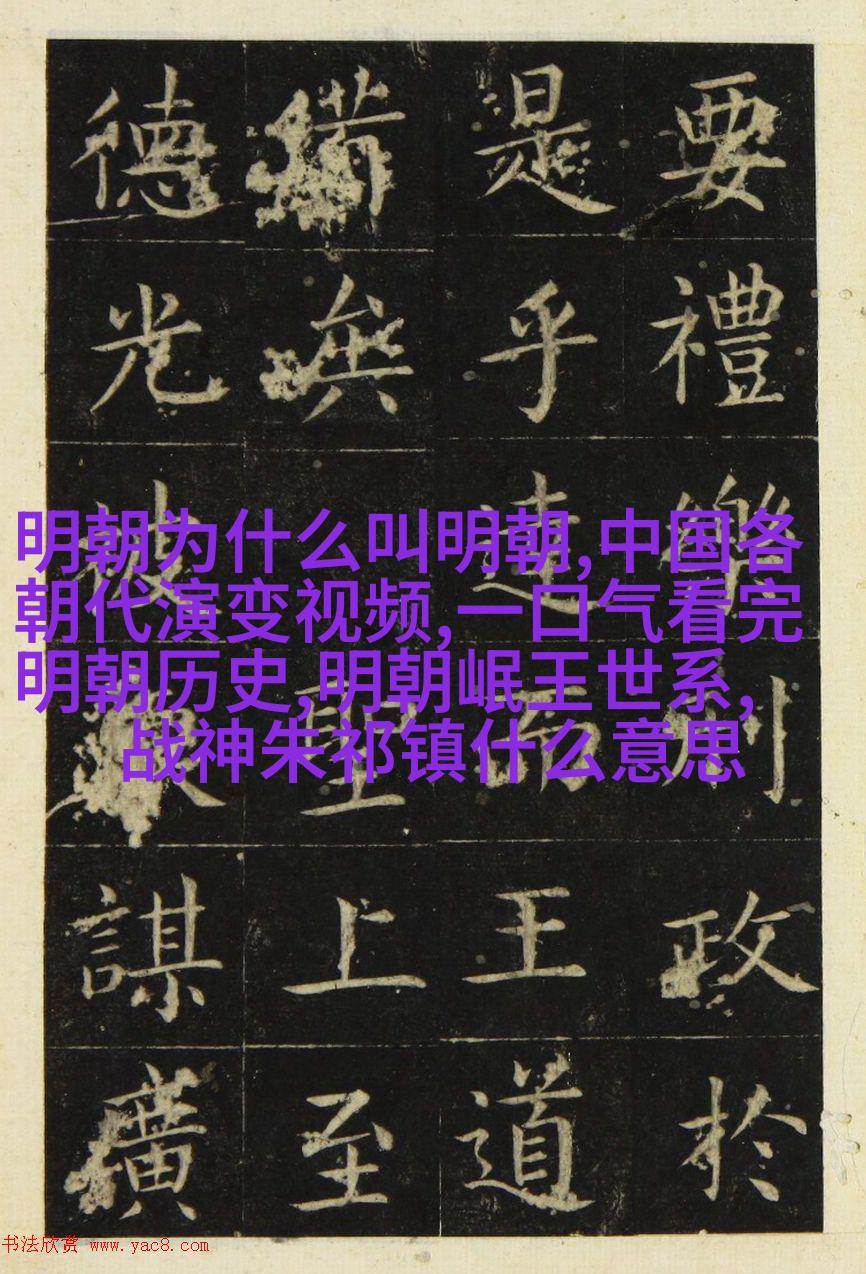 要禮樂刑政於
是乎達而王道
備無聖上至
德光被謀廣
明朝为什么叫明朝,中国各
朝代演变视频,一口气看完
明朝历史,明朝岷王世系,
战神朱祁镇什么意思
书法欣赏 www.yac8.com